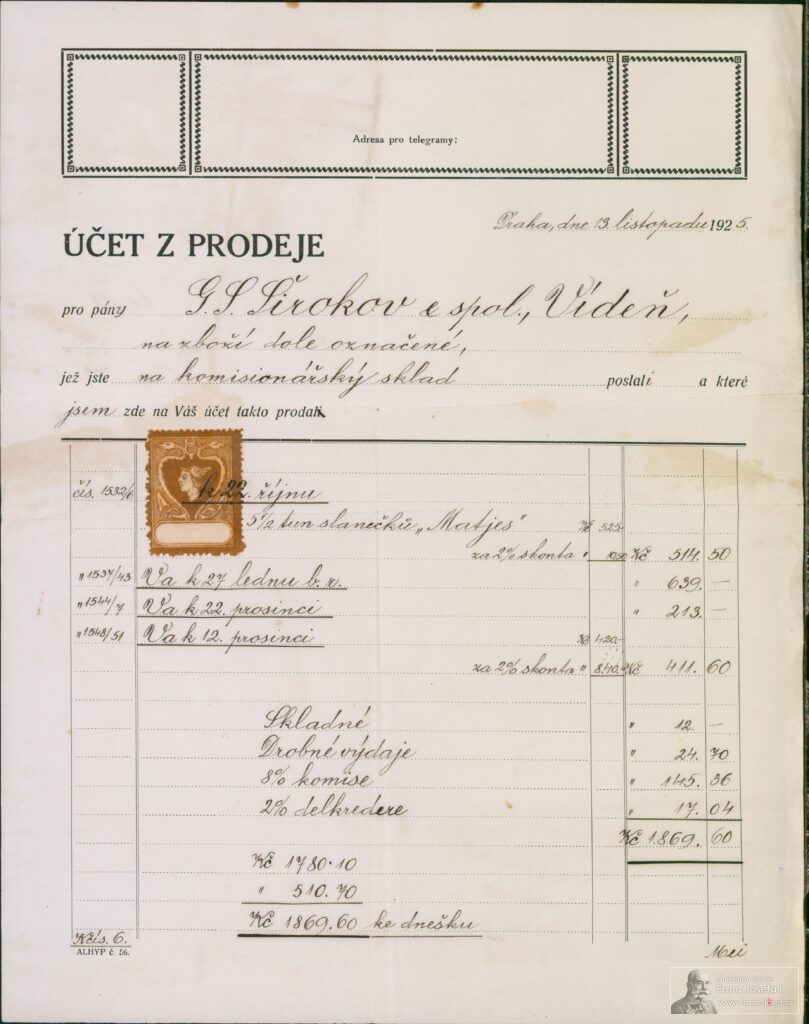 Adresa pro telegramy:
Praha, dne 13. listopadu 1925.
ÚČET Z PRODEJE
pro pány G. S. Širokov e spol., Vídeň,
na zboží dole označené,
jež jste na komisionářský sklad poslali a které
jsem zde na Váš účet takto prodal
čís. 1532/6 k 22. říjnu
5 1/2 tun slanečků „Matjes" Kč 525.
za 2% skonta " 10.50 Kč 514. 50
" 1537/43 Va k 27 lednu b. r. " 639. —
" 1544/7 Va k 22. prosinci " 213. —
" 1548/51 Va k 12. prosinci Kč 420.-
za 2% skonta " 8.40 Kč 411. 60
Skladné " 12. —
Drobné výdaje " 24. 70
8% komise " 145. 36
2% delkredere " 17. 04
Kč 1869. 60
Kč 1780.10
" 510. 70
Kč 1869.60 ke dnešku
Kčís. 6.
ALHYP č. 56.
Muzeum císaře
Franz Josefa I.
www.franzjosef.cz